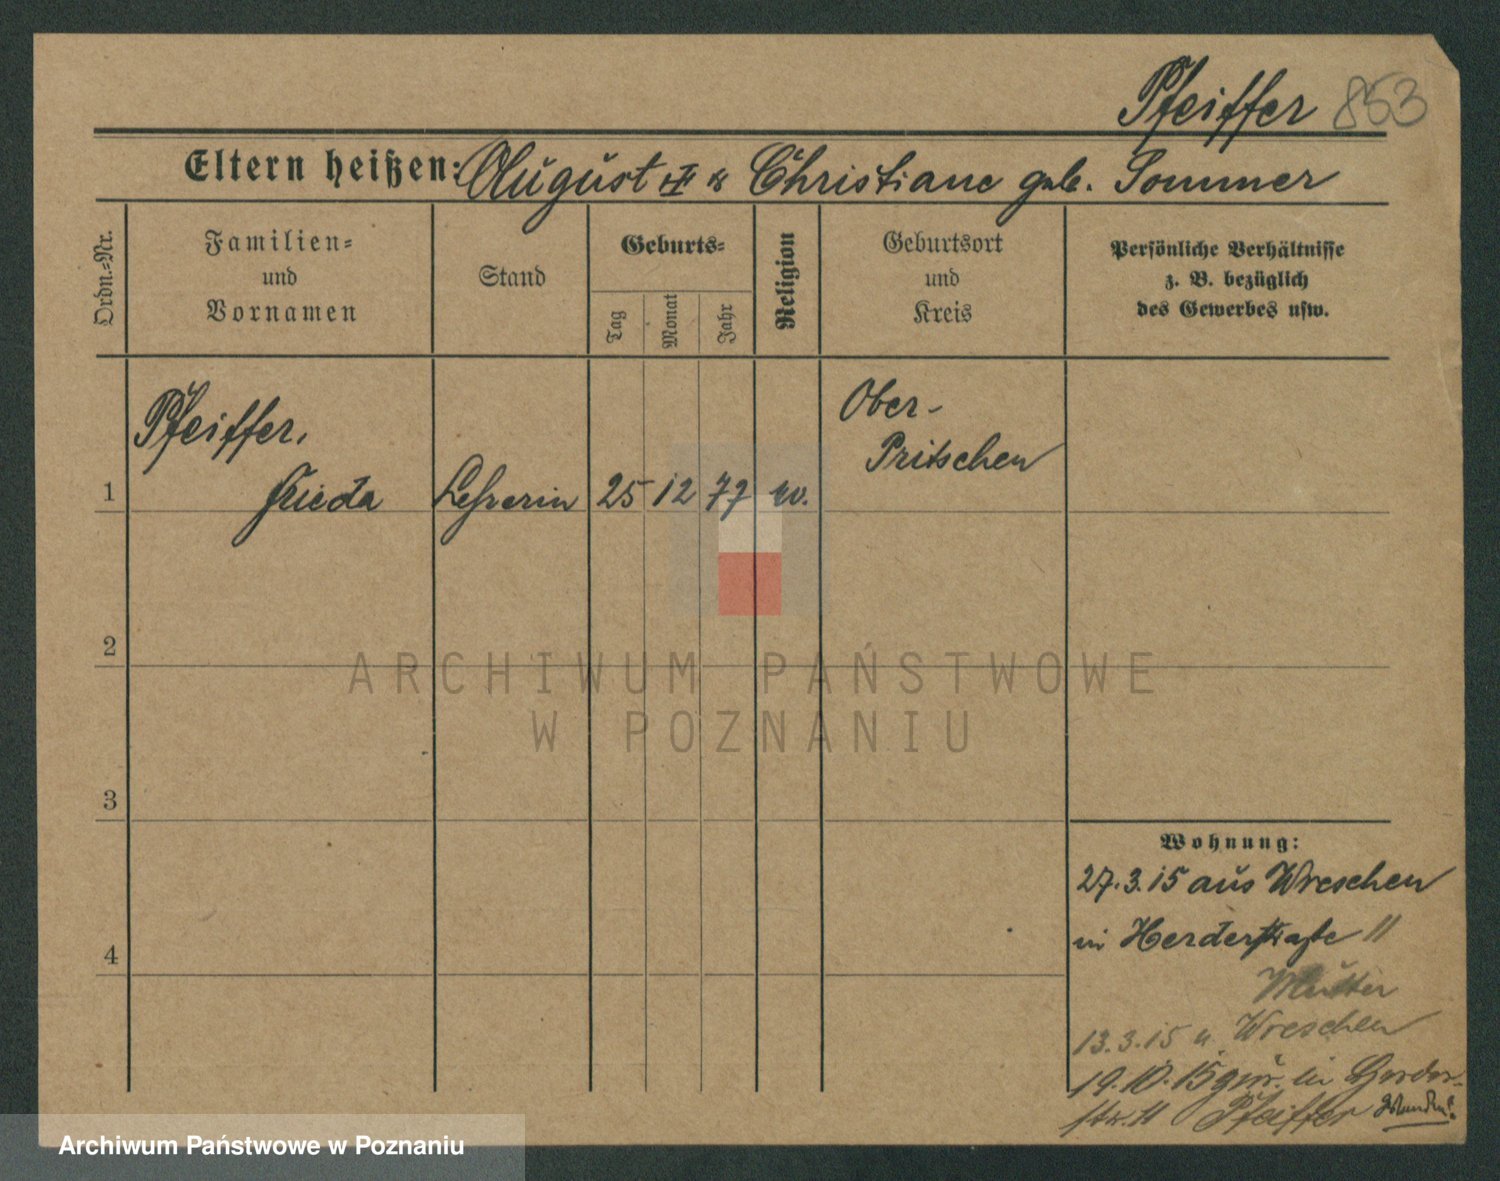 Pfeiffer 853
Eltern heißen: August & Christiane geb. Sommer
Ordn.=Nr.
Familien=
und
Vornamen
Stand
Geburts=
Tag
Monat
Jahr
Religion
Geburtsort
und
Kreis
Persönliche Verhältnisse
z. B. bezüglich
des Gewerbes usw.
1
Pfeiffer,
Frieda
Lehrerin
25
12
77
ev.
Ober-
Pritschen
2
3
4
Wohnung:
27.3.15 aus Wreschen
in Herderstraße 11
Mutter
13.3.15 n. Wreschen
19.10.15 in Herder-
str. 11 Pfeiffer
ARCHIWUM PAŃSTWOWE
W POZNANIU
Archiwum Państwowe w Poznaniu